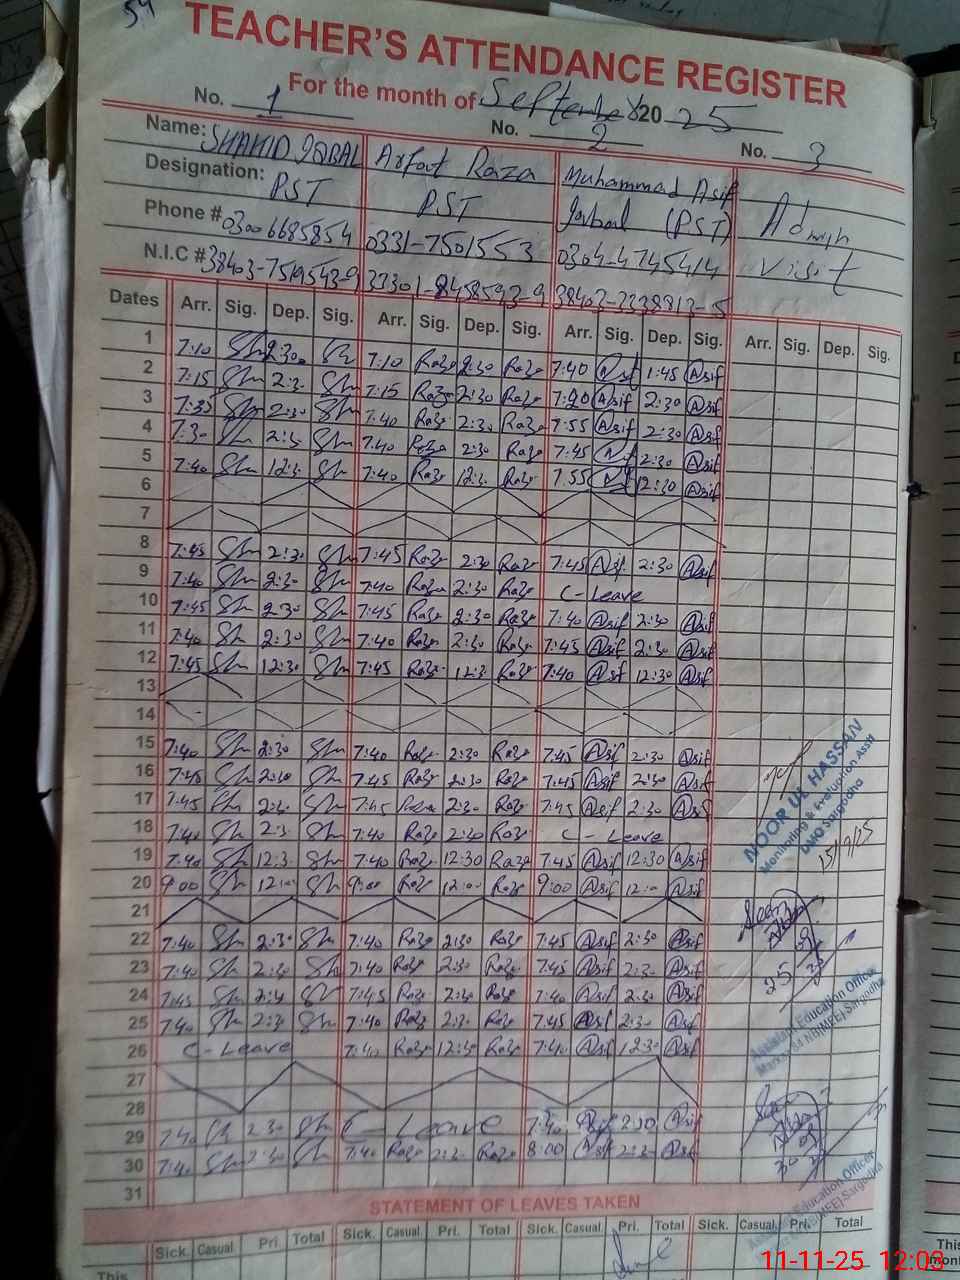 54
TEACHER'S ATTENDANCE REGISTER
For the month of September 2025
No. 1 No. 2 No. 3
Name: SHAHID IQBAL Arfat Raza Muhammad Asif
Designation: PST PST (PST)
Phone # 03006685854 0331-7501553 0304-4745414 Visit
N.I.C # 38403-7519543-9 33301-8458593-9 38403-2238812-5
Dates Arr. Sig. Dep. Sig. Arr. Sig. Dep. Sig. Arr. Sig. Dep. Sig. Arr. Sig. Dep. Sig.
1 7:10 Sh 2:30 7:10 Raza 2:30 Raza 7:40 Asif 1:45 Asif
2 7:15 Sh 2:30 Sh 7:15 Raza 2:30 Raza 7:20 Asif 2:30 Asif
3 7:35 Sh 2:30 Sh 7:40 Raza 2:30 Raza 7:55 Asif 2:30 Asif
4 7:30 Sh 2:30 Sh 7:40 Raza 2:30 Raza 7:45 Asif 2:30 Asif
5 7:40 Sh 12:30 Sh 7:40 Raza 12:30 Raza 7:55 Asif 12:30 Asif
6
7
8 7:45 Sh 2:30 Sh 7:45 Raza 2:30 Raza 7:45 Asif 2:30 Asif
9 7:40 Sh 2:30 Sh 7:40 Raza 2:30 Raza C-Leave
10 7:45 Sh 2:30 Sh 7:45 Raza 2:30 Raza 7:40 Asif 2:30 Asif
11 7:40 Sh 2:30 Sh 7:40 Raza 2:30 Raza 7:45 Asif 2:30 Asif
12 7:45 Sh 12:30 Sh 7:45 Raza 12:30 Raza 7:40 Asif 12:30 Asif
13
14
15 7:40 Sh 2:30 Sh 7:40 Raza 2:30 Raza 7:45 Asif 2:30 Asif
16 7:45 Sh 2:30 Sh 7:45 Raza 2:30 Raza 7:45 Asif 2:30 Asif
17 7:45 Sh 2:30 Sh 7:45 Raza 2:30 Raza 7:45 Asif 2:30 Asif
18 7:40 Sh 2:30 Sh 7:40 Raza 2:30 Raza C-Leave
19 7:40 Sh 12:30 Sh 7:40 Raza 12:30 Raza 7:45 Asif 12:30 Asif
20 9:00 Sh 12:00 Sh 9:00 Raza 12:00 Raza 9:00 Asif 12:00 Asif
21
22 7:40 Sh 2:30 Sh 7:40 Raza 2:30 Raza 7:45 Asif 2:30 Asif
23 7:40 Sh 2:30 Sh 7:40 Raza 2:30 Raza 7:45 Asif 2:30 Asif
24 7:45 Sh 2:30 Sh 7:45 Raza 2:30 Raza 7:40 Asif 2:30 Asif
25 7:40 Sh 2:30 Sh 7:40 Raza 2:30 Raza 7:45 Asif 2:30 Asif
26 C-Leave 7:40 Raza 12:30 Raza 7:40 Asif 12:30 Asif
27
28
29 7:40 Sh 2:30 Sh C-Leave 7:40 Asif 2:30 Asif
30 7:40 Sh 2:30 Sh 7:40 Raza 2:30 Raza 8:00 Asif 2:30 Asif
31
NOOR UL HASSAN
Monitoring & Evaluation Asstt
DMO Sargodha
15/9/25
Assistant Education Officer
Education Officer
STATEMENT OF LEAVES TAKEN
Sick. Casual Pri. Total Sick. Casual. Pri. Total Sick. Casual. Pri. Total Sick. Casual. Pri. Total
This
This
11-11-25 12:03